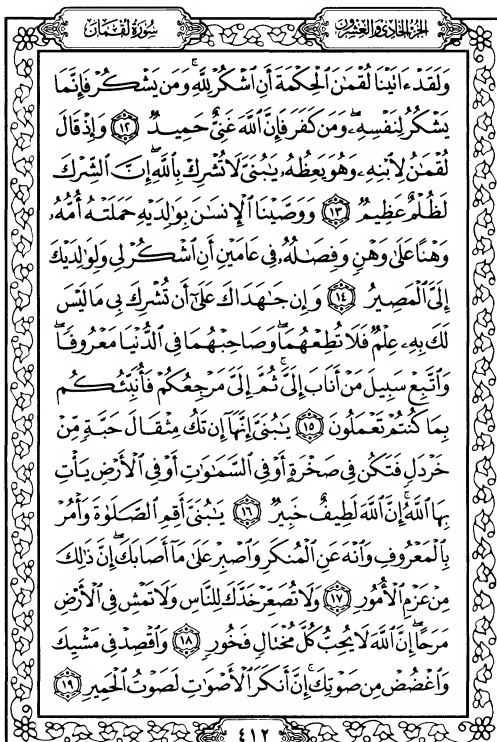 سُورَةُ لُقْمَانَ
الجُزْءُ الحَادِي وَالعِشْرُونَ
وَلَقَدْ ءَاتَيْنَا لُقْمَٰنَ ٱلْحِكْمَةَ أَنِ ٱشْكُرْ لِلَّهِۚ وَمَن يَشْكُرْ فَإِنَّمَا
يَشْكُرُ لِنَفْسِهِۦۖ وَمَن كَفَرَ فَإِنَّ ٱللَّهَ غَنِىٌّ حَمِيدٌ ١٢ وَإِذْ قَالَ
لُقْمَٰنُ لِٱبْنِهِۦ وَهُوَ يَعِظُهُۥ يَٰبُنَىَّ لَا تُشْرِكْ بِٱللَّهِۖ إِنَّ ٱلشِّرْكَ
لَظُلْمٌ عَظِيمٌ ١٣ وَوَصَّيْنَا ٱلْإِنسَٰنَ بِوَٰلِدَيْهِ حَمَلَتْهُ أُمُّهُۥ
وَهْنًا عَلَىٰ وَهْنٍ وَفِصَٰلُهُۥ فِى عَامَيْنِ أَنِ ٱشْكُرْ لِى وَلِوَٰلِدَيْكَ
إِلَىَّ ٱلْمَصِيرُ ١٤ وَإِن جَٰهَدَاكَ عَلَىٰٓ أَن تُشْرِكَ بِى مَا لَيْسَ
لَكَ بِهِۦ عِلْمٌ فَلَا تُطِعْهُمَاۖ وَصَاحِبْهُمَا فِى ٱلدُّنْيَا مَعْرُوفًاۖ
وَٱتَّبِعْ سَبِيلَ مَنْ أَنَابَ إِلَىَّۚ ثُمَّ إِلَىَّ مَرْجِعُكُمْ فَأُنَبِّئُكُم
بِمَا كُنتُمْ تَعْمَلُونَ ١٥ يَٰبُنَىَّ إِنَّهَآ إِن تَكُ مِثْقَالَ حَبَّةٍ مِّنْ
خَرْدَلٍ فَتَكُن فِى صَخْرَةٍ أَوْ فِى ٱلسَّمَٰوَٰتِ أَوْ فِى ٱلْأَرْضِ يَأْتِ
بِهَا ٱللَّهُۚ إِنَّ ٱللَّهَ لَطِيفٌ خَبِيرٌ ١٦ يَٰبُنَىَّ أَقِمِ ٱلصَّلَوٰةَ وَأْمُرْ
بِٱلْمَعْرُوفِ وَٱنْهَ عَنِ ٱلْمُنكَرِ وَٱصْبِرْ عَلَىٰ مَآ أَصَابَكَۖ إِنَّ ذَٰلِكَ
مِنْ عَزْمِ ٱلْأُمُورِ ١٧ وَلَا تُصَعِّرْ خَدَّكَ لِلنَّاسِ وَلَا تَمْشِ فِى ٱلْأَرْضِ
مَرَحًاۖ إِنَّ ٱللَّهَ لَا يُحِبُّ كُلَّ مُخْتَالٍ فَخُورٍ ١٨ وَٱقْصِدْ فِى مَشْيِكَ
وَٱغْضُضْ مِن صَوْتِكَۚ إِنَّ أَنكَرَ ٱلْأَصْوَٰتِ لَصَوْتُ ٱلْحَمِيرِ ١٩
٤١٢